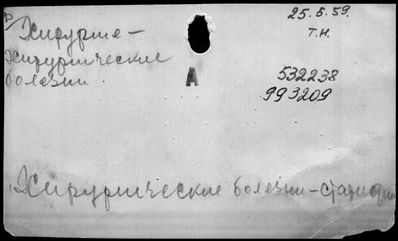 Хирурги-
Хирургические
болезни.
25.5.59.
Т.Н.
А
532238
993209
Хирургические болезни-статистика